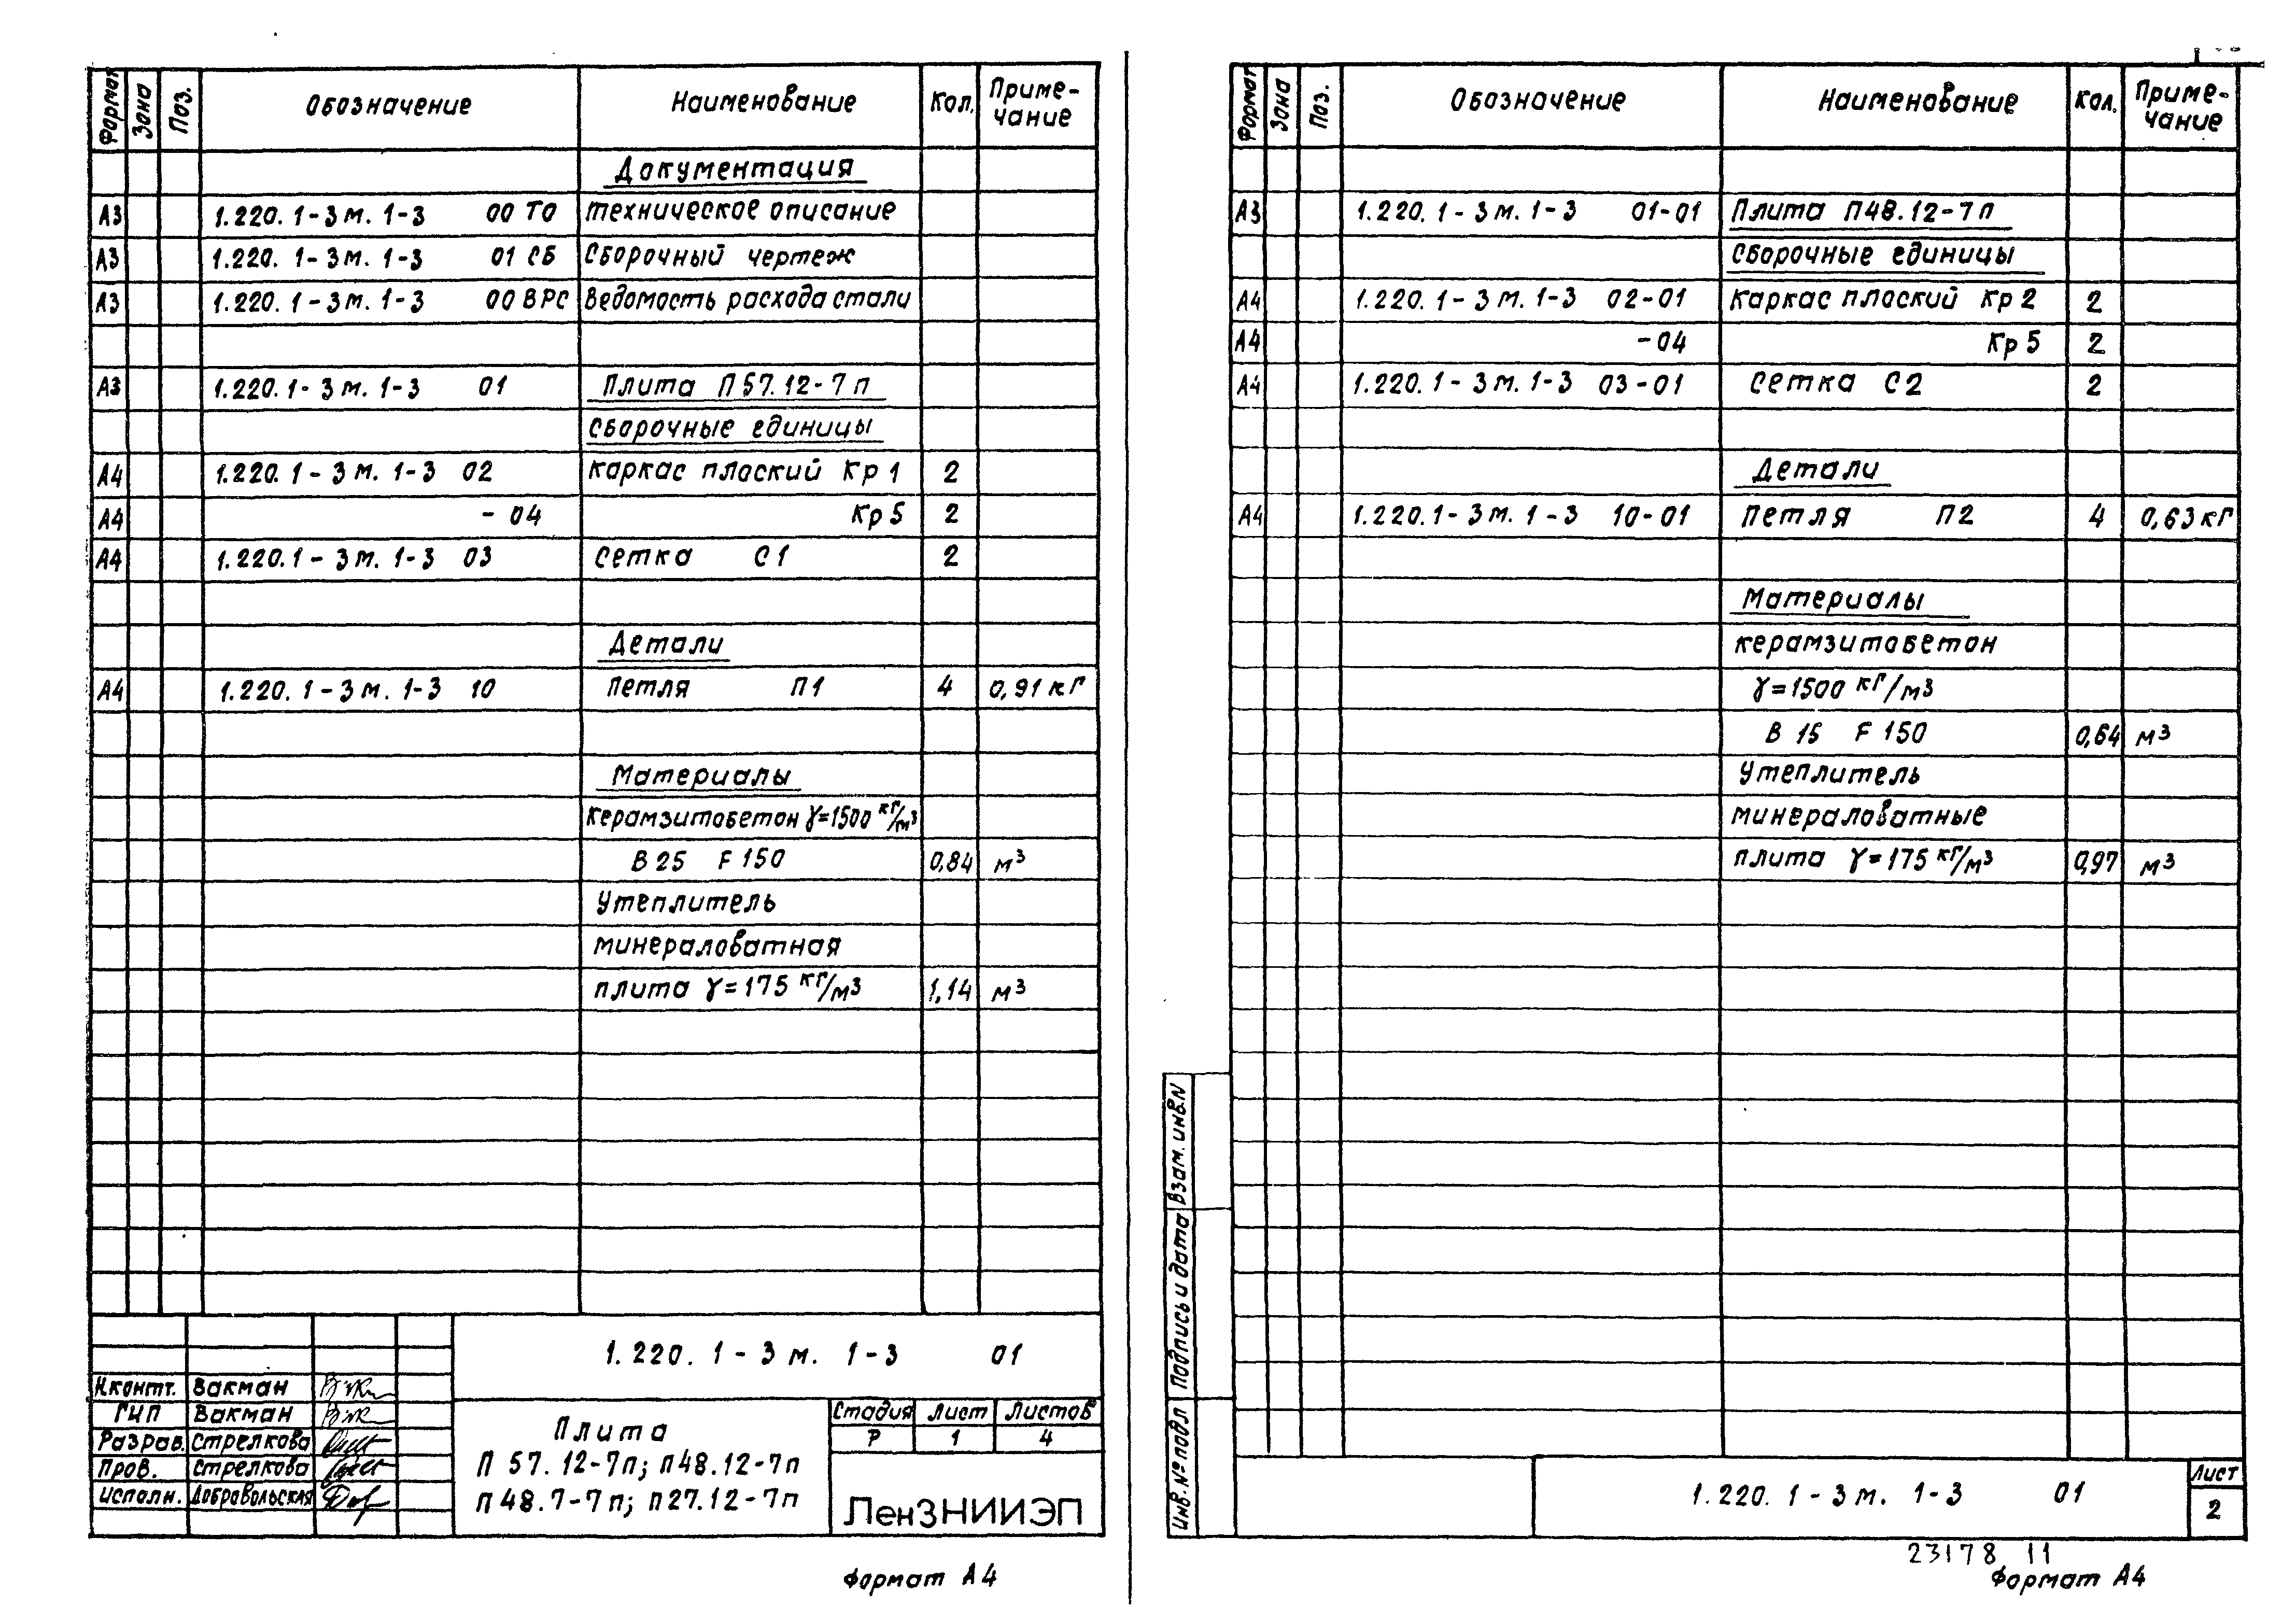 Формат Зона Поз. Обозначение Наименование Кол. Приме-
чание
Документация
А3 1.220.1-3м.1-3 00 ТО техническое описание
А3 1.220.1-3м.1-3 01 СБ Сборочный чертеж
А3 1.220.1-3м.1-3 00 ВРС Ведомость расхода стали
А3 1.220.1-3м.1-3 01 Плита П57.12-7п
сборочные единицы
А4 1.220.1-3м.1-3 02 каркас плоский Кр1 2
А4 -04 Кр5 2
А4 1.220.1-3м.1-3 03 сетка С1 2
Детали
А4 1.220.1-3м.1-3 10 петля П1 4 0,91кг
Материалы
керамзитобетон γ=1500 кг/м3
В25 F150 0,84 м3
Утеплитель
минераловатная
плита γ=175 кг/м3 1,14 м3
1.220.1-3м.1-3 01
Н.контт. Вакман
ГИП Вакман
Разраб. Стрелкова
Пров. Стрелкова
Исполн. Добровольская
Плита
П 57.12-7п; П48.12-7п
П48.7-7п; П27.12-7п
Стадия Лист Листов
Р 1 4
ЛенЗНИИЭП
Формат А4
Формат Зона Поз. Обозначение Наименование Кол. Приме-
чание
А3 1.220.1-3м.1-3 01-01 Плита П48.12-7п
сборочные единицы
А4 1.220.1-3м.1-3 02-01 каркас плоский Кр2 2
А4 -04 Кр5 2
А4 1.220.1-3м.1-3 03-01 сетка С2 2
Детали
А4 1.220.1-3м.1-3 10-01 петля П2 4 0,63кг
Материалы
керамзитобетон
γ=1500 кг/м3
В 15 F 150 0,64 м3
Утеплитель
минераловатные
плита γ=175 кг/м3 0,97 м3
Взам. инв.N
Подпись и дата
Инв.№ подл
1.220.1-3м.1-3 01
Лист
2
23178 11
Формат А4